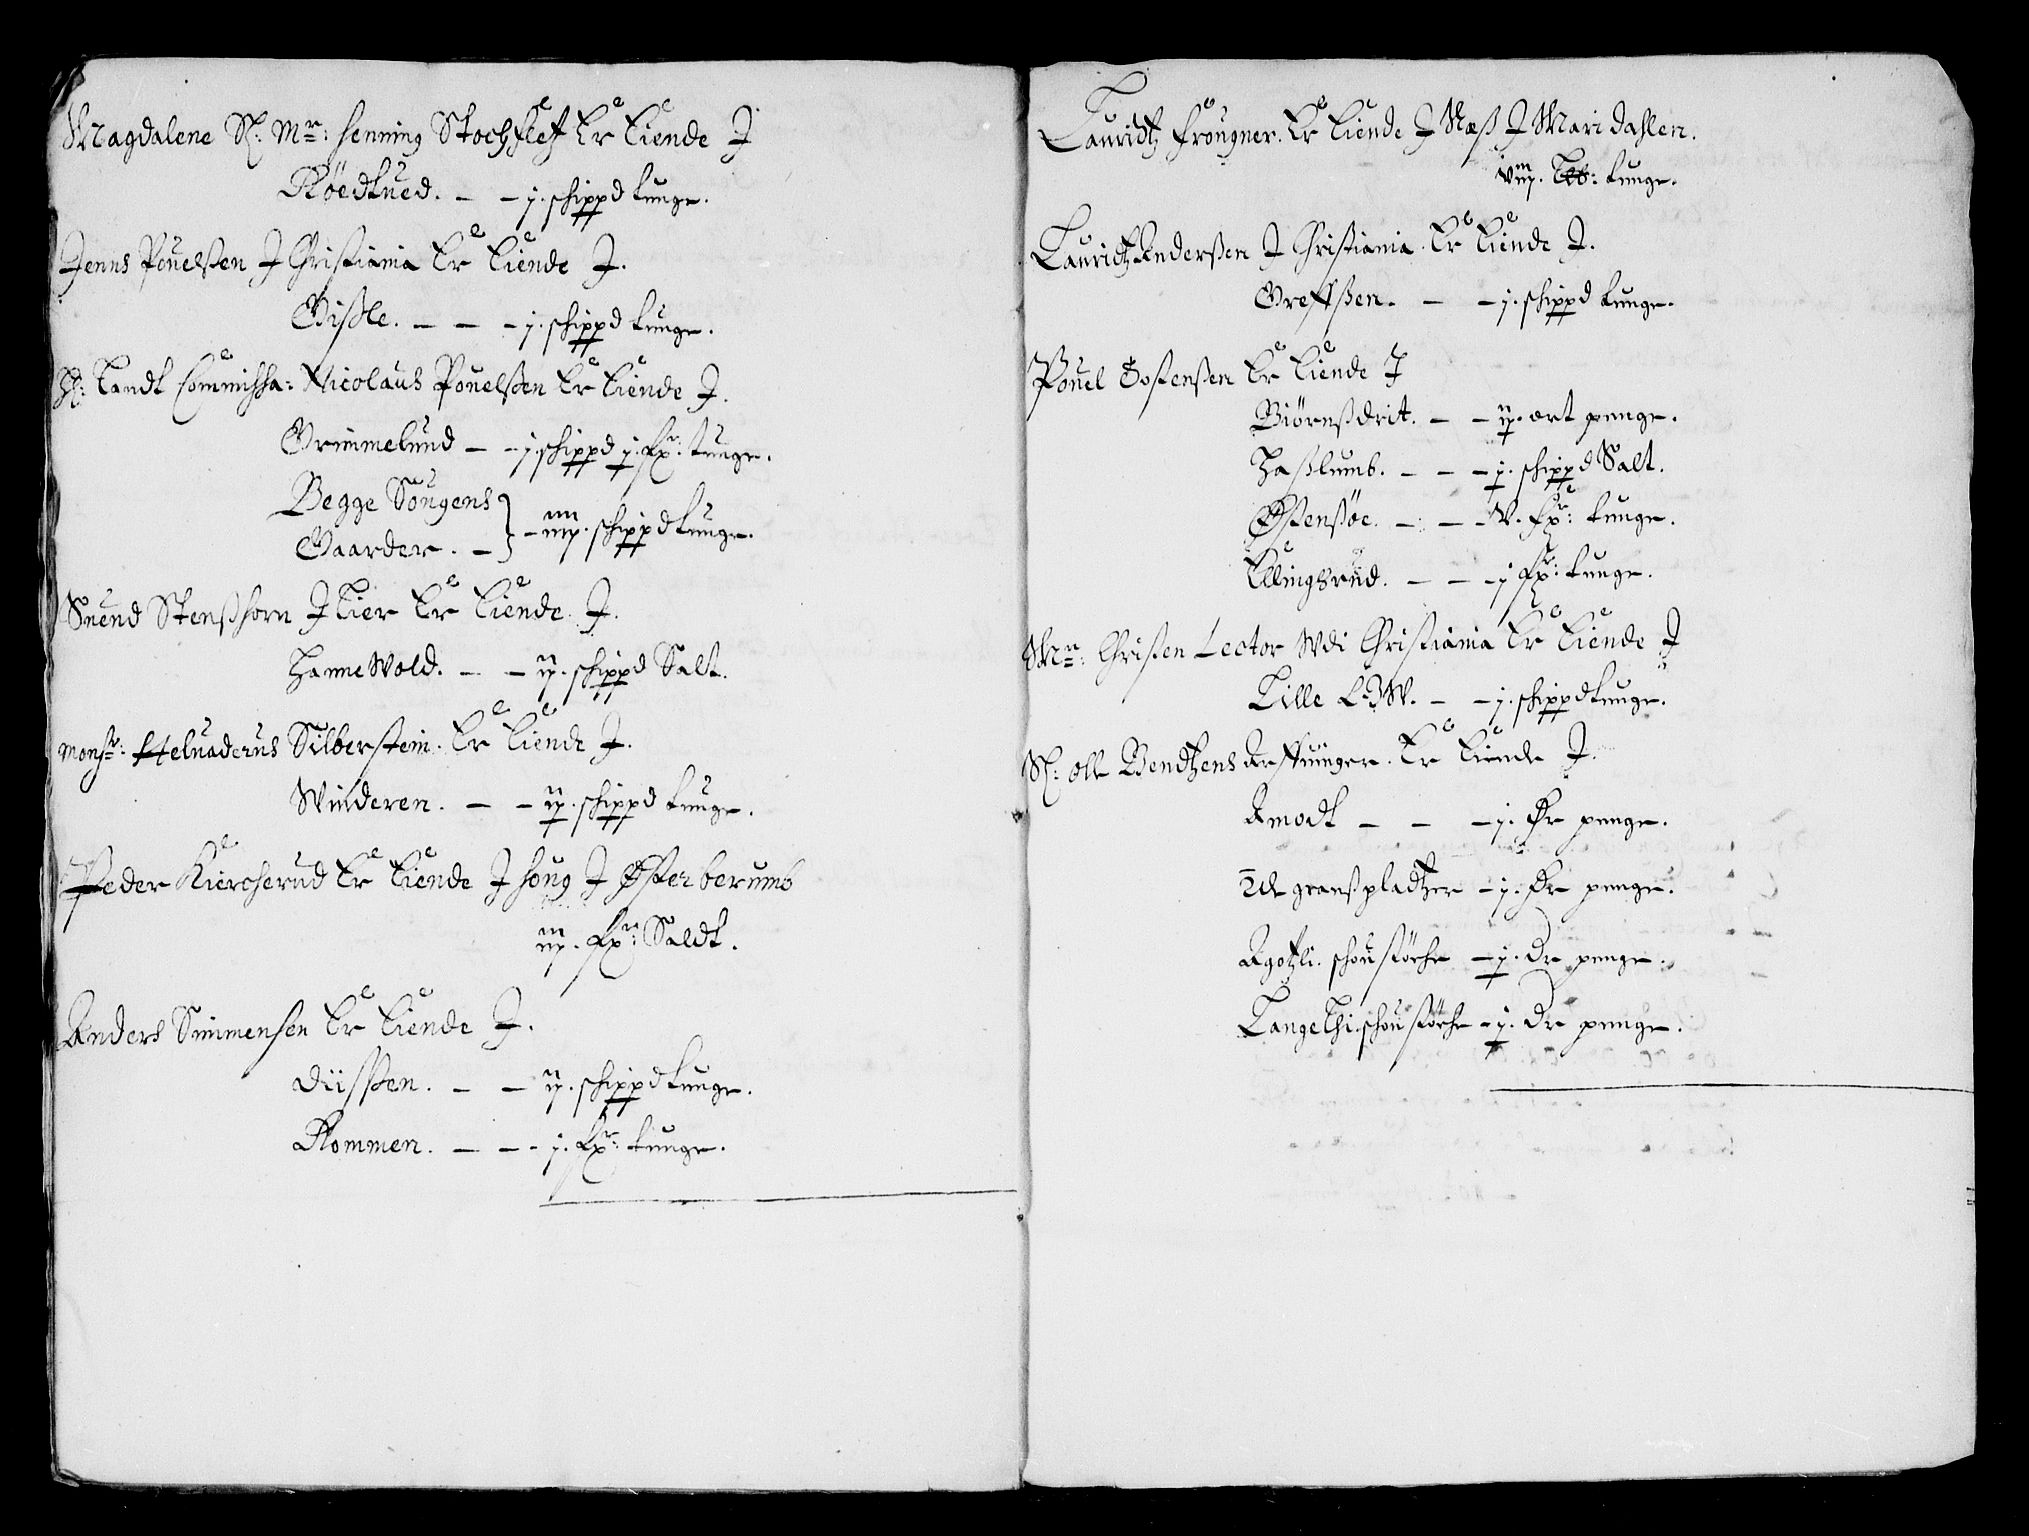 Magdalene Sl: Mr: Henning Stochflet Er Eiende J
Røedtued. – – j. schippd tunge.
Jenns Pouelßen J Christiania Er Eiende J.
Gißle. – – – j. schippd tunge.
H: Landt Commissa: Nicolaus Pouelßen Er Eiende J.
Grimmelund – – j. schippd j. fr: tunge.
Begge Sougens
Gaarder. – – iiij. schippd tunge.
Suend Stenßhorn J Lier Er Eiende J.
HanneWold. – – ij. schippd Salt.
Monsr: Heluaderus Silberstein. Er Eiende J.
Winderen. – – ij. schippd tunge.
Peder Kiercherud Er Eiende J Houg J Østerberumb
iij. fr: Saldt.
Anders Simmensen Er Eiende J.
Diißen. – – ij. schippd tunge.
Rommen. – – – j. fr: tunge.
Lauridtz Frougner. Er Eiende J Næß J Maridahlen.
tunge.
Lauridtz Anderßen J Christiania. Er Eiende J.
Greffßen. – – j. schippd tunge.
Pouel Jostenßen Er Eiende J
Biørnßdrit. – – ij. ort penge.
Haßlumb. – – – j. schippd Salt.
Østenßøe. – – V. fr: tunge.
Ellingsrud. – – – j fr: tunge.
Mr: Christen Lector Wdi Christiania Er Eiende J
Lille – – j. schippd tunge.
Sl: Olle Bendtzens Arffuinger. Er Eiende J.
Amodt – – – j. Ør penge.
granßpladtzer – j. Ør penge.
– j. Ør penge.
– j. Ør penge.